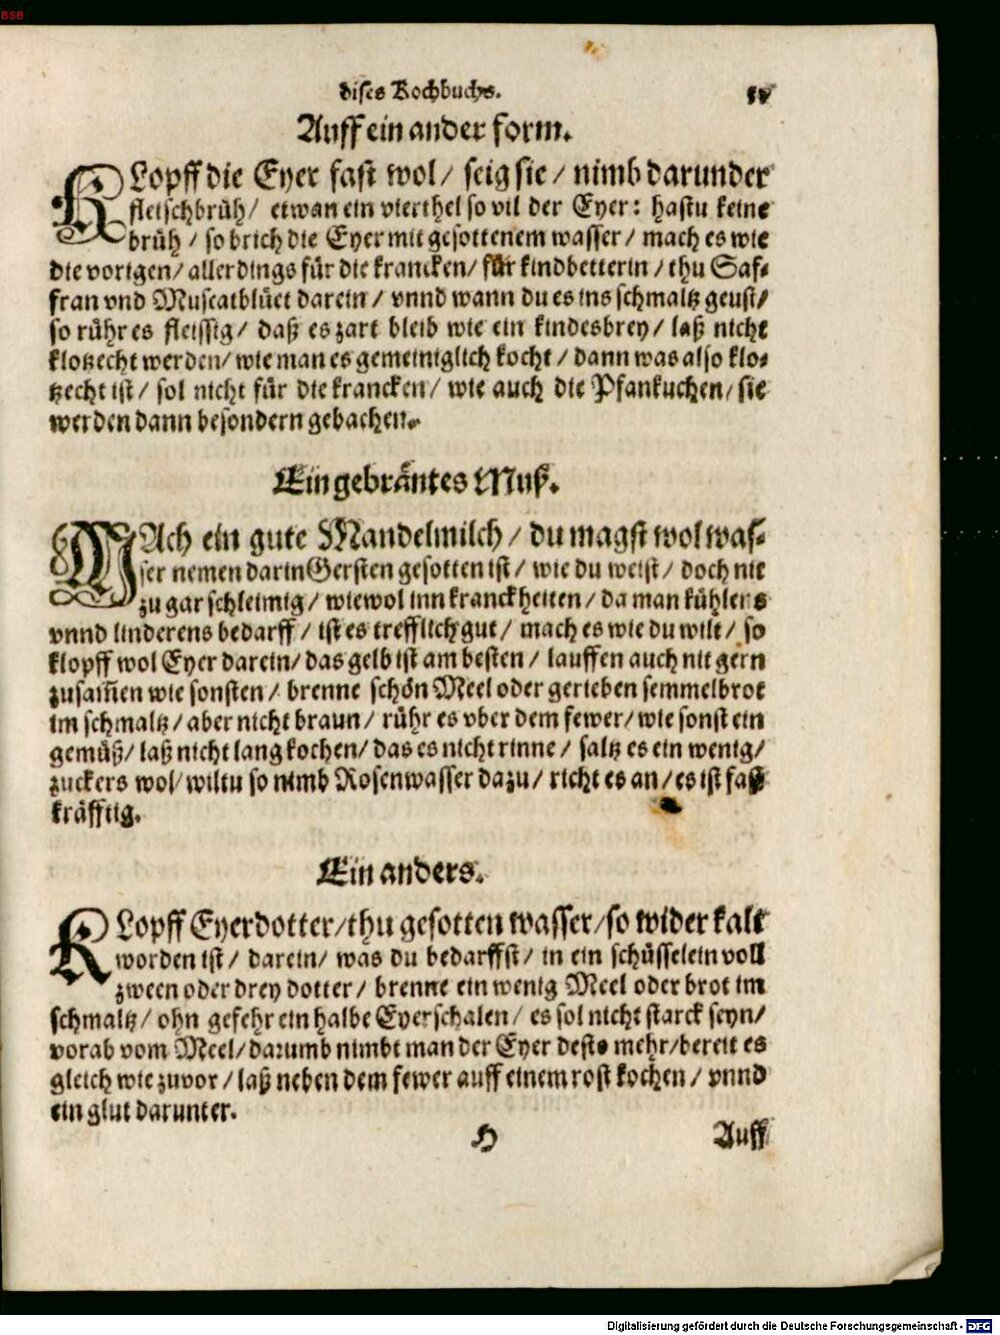 BSB
dises Kochbuchs.
Auff ein ander form.
KLopff die Eyer fast wol / seig sie / nimb darunder
fleischbrüh / etwan ein vierthel so vil der Eyer: hastu keine
brüh / so brich die Eyer mit gesottenem wasser / mach es wie
die vorigen / allerdings für die krancken / für kindbetterin / thu Saf-
fran vnd Muscatblüet darein / vnnd wann du es ins schmaltz geust /
so rühr es fleissig / daß es zart bleib wie ein kindesbrey / laß nicht
klotzecht werden / wie man es gemeiniglich kocht / dann was also klo-
tzecht ist / sol nicht für die krancken / wie auch die Pfankuchen / sie
werden dann besondern gebachen.
Ein gebräntes Muß.
MAch ein gute Mandelmilch / du magst wol was-
ser nemen darin Gersten gesotten ist / wie du weist / doch nit
zu gar schleimig / wiewol inn kranckheiten / da man kühlers
vnnd linderens bedarff / ist es trefflich gut / mach es wie du wilt / so
klopff wol Eyer darein / das gelb ist am besten / lauffen auch nit gern
zusam̃en wie sonsten / brenne schön Meel oder gerieben semmelbrot
im schmaltz / aber nicht braun / rühr es vber dem fewer / wie sonst ein
gemüß / laß nicht lang kochen / das es nicht rinne / saltz es ein wenig /
zuckers wol / wiltu so nimb Rosenwasser dazu / richt es an / es ist fast
kräfftig.
Ein anders.
KLopff Eyerdotter / thu gesotten wasser / so wider kalt
worden ist / darein / was du bedarffst / in ein schüsselein voll
zween oder drey dotter / brenne ein wenig Meel oder brot im
schmaltz / ohn gefehr ein halbe Eyerschalen / es sol nicht starck seyn /
vorab vom Meel / darumb nimbt man der Eyer desto mehr / bereit es
gleich wie zuvor / laß neben dem fewer auff einem rost kochen / vnnd
ein glut darunter.
H Auff
Digitalisierung gefördert durch die Deutsche Forschungsgemeinschaft - DFG